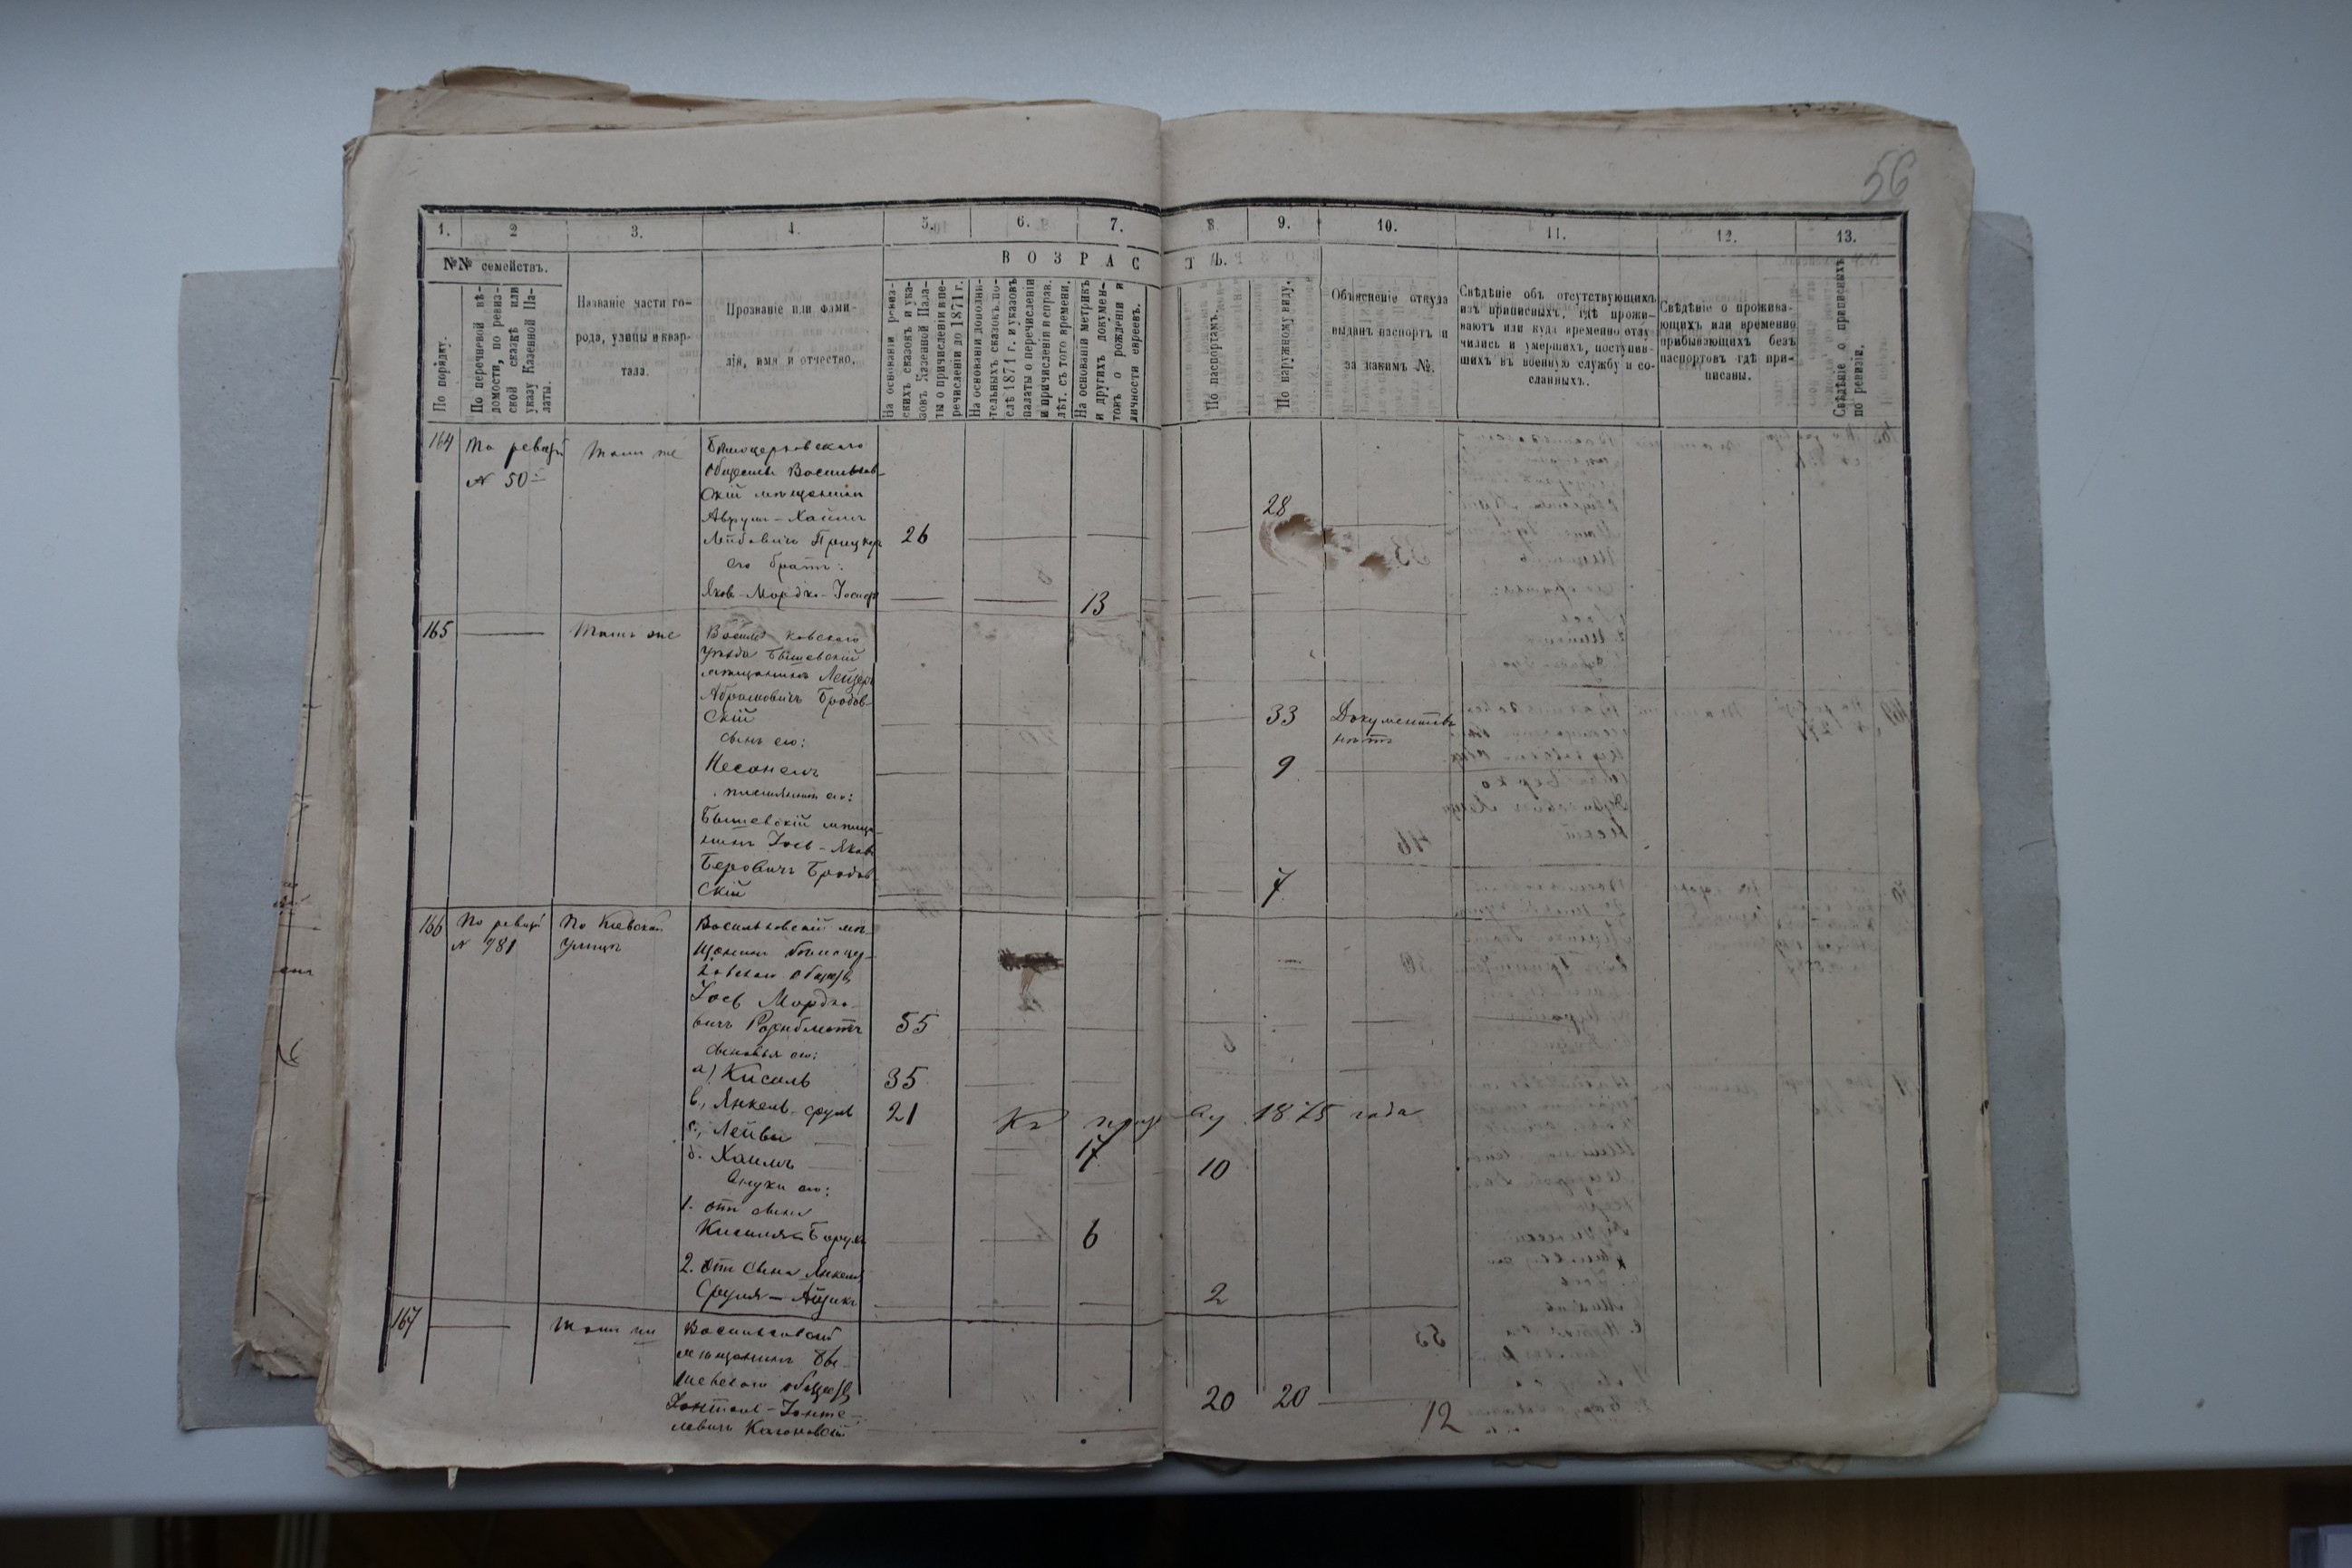 56
1. 2 3. 4. 5. 6. 7. 8. 9. 10. 11. 12. 13.
№№ семействъ.
В О З Р А С Т Ъ.
По порядку.
По перечневой вѣ-
домости, по ревиз-
ской сказкѣ или
указу Казенной Па-
латы.
Названіе части го-
рода, улицы и квар-
тала.
Прозваніе или фами-
лія, имя и отчество.
На основаніи ревиз-
скихъ сказокъ и ука-
зовъ Казенной Пала-
ты о причисленіи и пе-
речисленіи до 1871 г.
На основаніи дополни-
тельныхъ сказокъ по-
слѣ 1871 г. и указовъ
палаты о перечисленіи
и причисленіи и справ.
лѣт. съ того времени.
На основаніи метрикъ
и другихъ докумен-
товъ о рожденіи и
личности евреевъ.
По паспортамъ.
По наружному виду.
Объясненіе откуда
выданъ паспортъ и
за какимъ №.
Свѣдѣніе объ отсутствующихъ
изъ приписныхъ, гдѣ прожи-
ваютъ или куда временно отлу-
чились и умершихъ, поступив-
шихъ въ военную службу и со-
сланныхъ.
Свѣдѣніе о прожива-
ющихъ или временно
прибывающихъ безъ
паспортовъ гдѣ при-
писаны.
Свѣдѣніе о приписныхъ
по ревизіи.
164 По ревизіи Тамъ же Бѣлоцерковскаго
№ 50 Общества Васильков-
скій мѣщанинъ
Аврумъ-Хаимъ 28
Лейбовичъ 26
его братъ:
Яковъ-Мордко-Іосифъ 13
165 Тамъ же Васильковскаго
уѣзда Бышевскій
мѣщанинъ Лейзеръ
Абрамовичъ Бродов-
скій 33 Документовъ
нѣтъ
сынъ его:
Несанелъ 9
племянникъ его:
Бышевскій мѣща-
нинъ Іось-Яковъ
Беровичъ Бродов
скій 7
166 По ревизіи По Кіевской Васильковскій мѣ-
№ 781 улицѣ щанинъ бѣлоцер-
ковскаго обществ.
Іось Мордко-
вичъ 55
сыновья его:
а) Кисиль 35
в, Янкель-сруль 21 Къ призыву 1875 года
с, Лейви 17
д. Хаимъ 10
внуки его:
1. отъ сына
Кисиля-Борухъ 6
2. отъ сына Янкеля
Сруля - Айзикъ 2
167 Тамъ же Васильковскій
мѣщанинъ Бы-
шевскаго обществ.
20 20
12